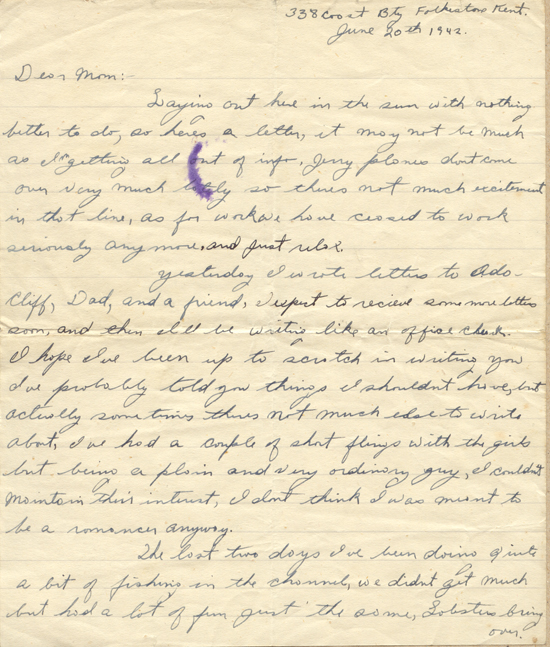 338 Coast Bty Folkstone Kent.
June 20th 1942.
Dear Mom:-
Laying out here in the sun with nothing
better to do, so heres a letter, it may not be much
as I'm getting all out of info. Jerry planes dont come
over very much lately so theres not much excitement
in that line, as for work we have ceased to work
seriously any more, and just relax.
Yesterday I wrote letters to Ada-
Cliff, Dad, and a friend, I expect to recieve some more letters
soon, and then I'll be writing like an office
I hope I've been up to scratch in writing you
I've probably told you things I shouldn't have, but
actually sometimes theres not much else to write
about, I've had a couple of short flings with the girls
but being a plain and very ordinary guy, I couldn't
maintain their interest, I dont think I was meant to
be a romancer anyway.
The last two days I've been doing quite
a bit of fishing in the channel, we didn't get much
but had a lot of fun just the same, Lobsters bring
over.